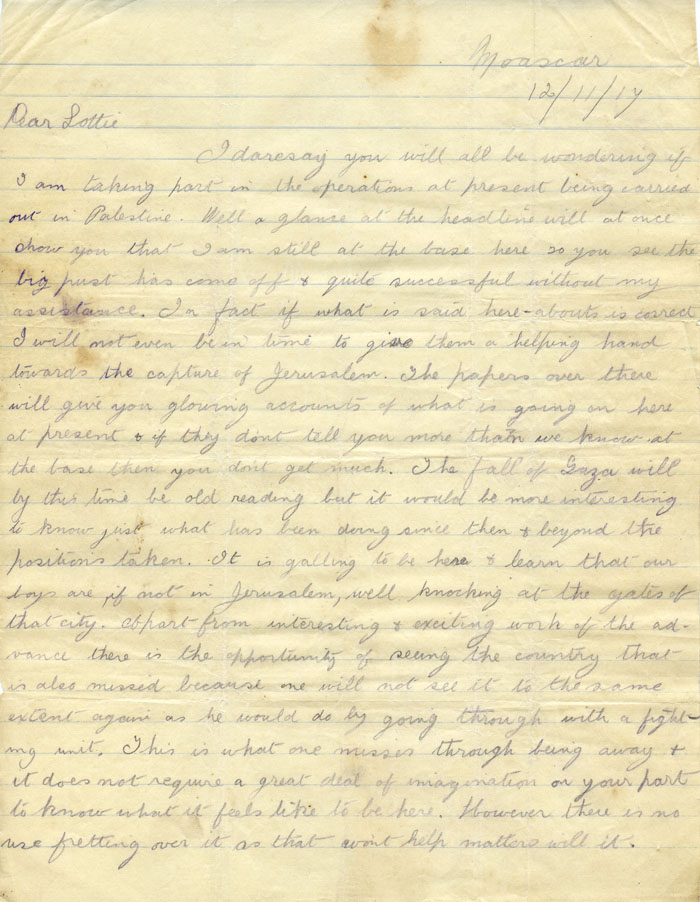 Moascar
12/11/17
Dear Lottie
I daresay you will all be wondering if
I am taking part in the operations at present being carried
out in Palestine. Well a glance at the headline will at once
show you that I am still at the base here so you see the
big push has come off & quite successful without my
assistance. In fact if what is said here-abouts is correct
I will not even be in time to give them a helping hand
towards the capture of Jerusalem. The papers over there
will give you glowing accounts of what is going on here
at present & if they dont tell you more than we know at
the base then you dont get much. The fall of Gaza will
by this time be old reading but it would be more interesting
to know just what has been doing since then & beyond the
positions taken. It is galling to be here & learn that our
boys are, if not in Jerusalem, well knocking at the gates of
that city. Apart from interesting & exciting work of the ad-
vance there is the opportunity of seeing the country that
is also missed because one will not see it to the same
extent again as he would do by going through with a fight-
ing unit. This is what one misses through being away &
it does not require a great deal of imagination on your part
to know what it feels like to be here. However there is no
use fretting over it as that wont help matters will it.